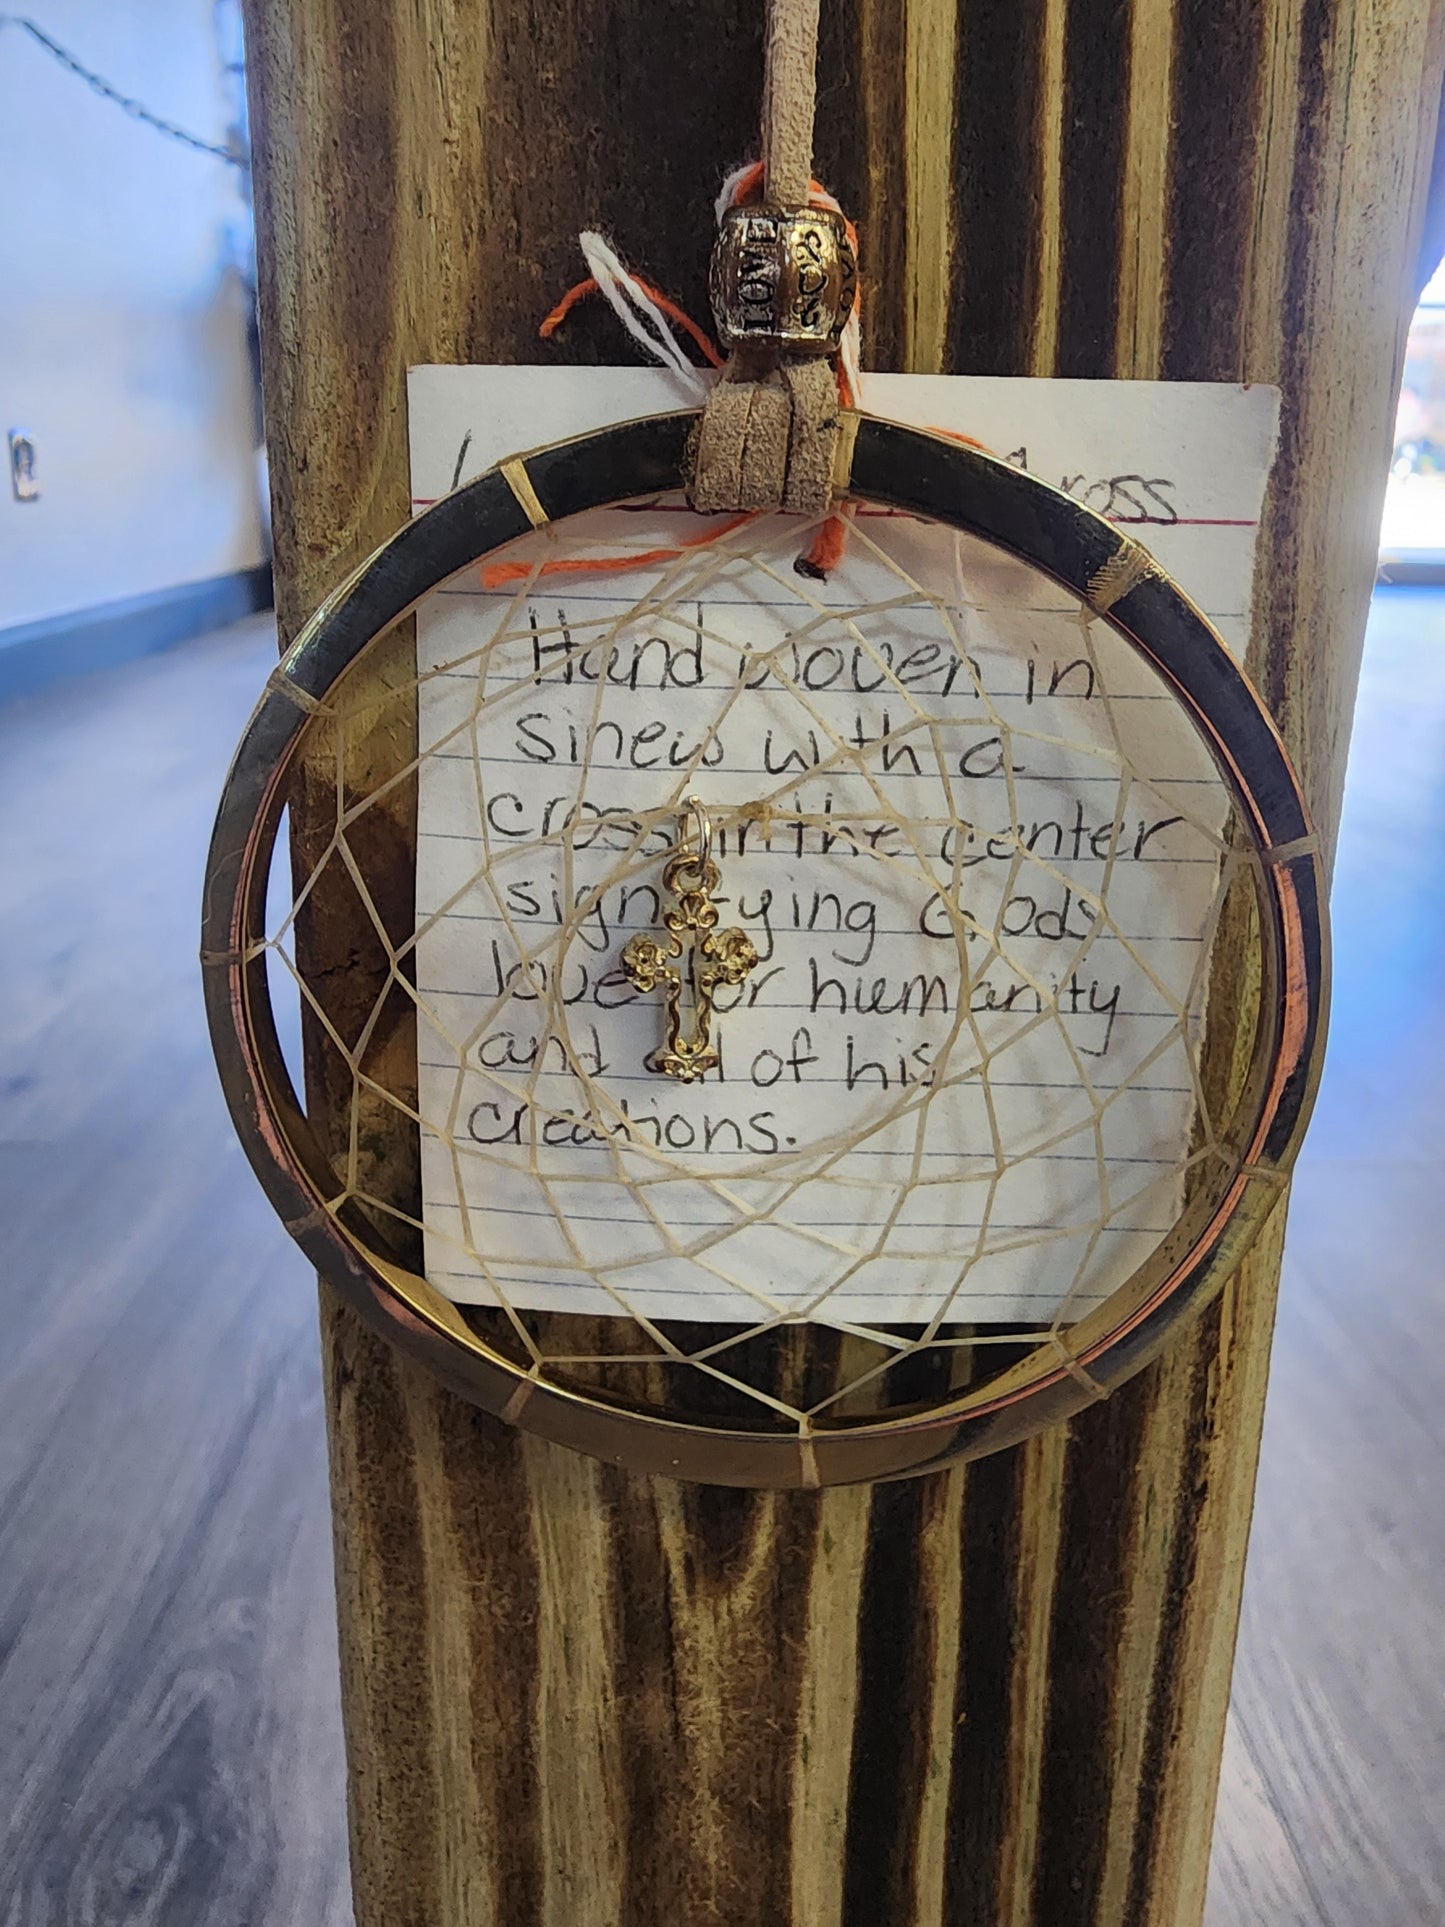 LOVE
LOVE
Hand woven in
sinew with a
cross in the center
signifying Gods
love for humanity
and all of his
creations.